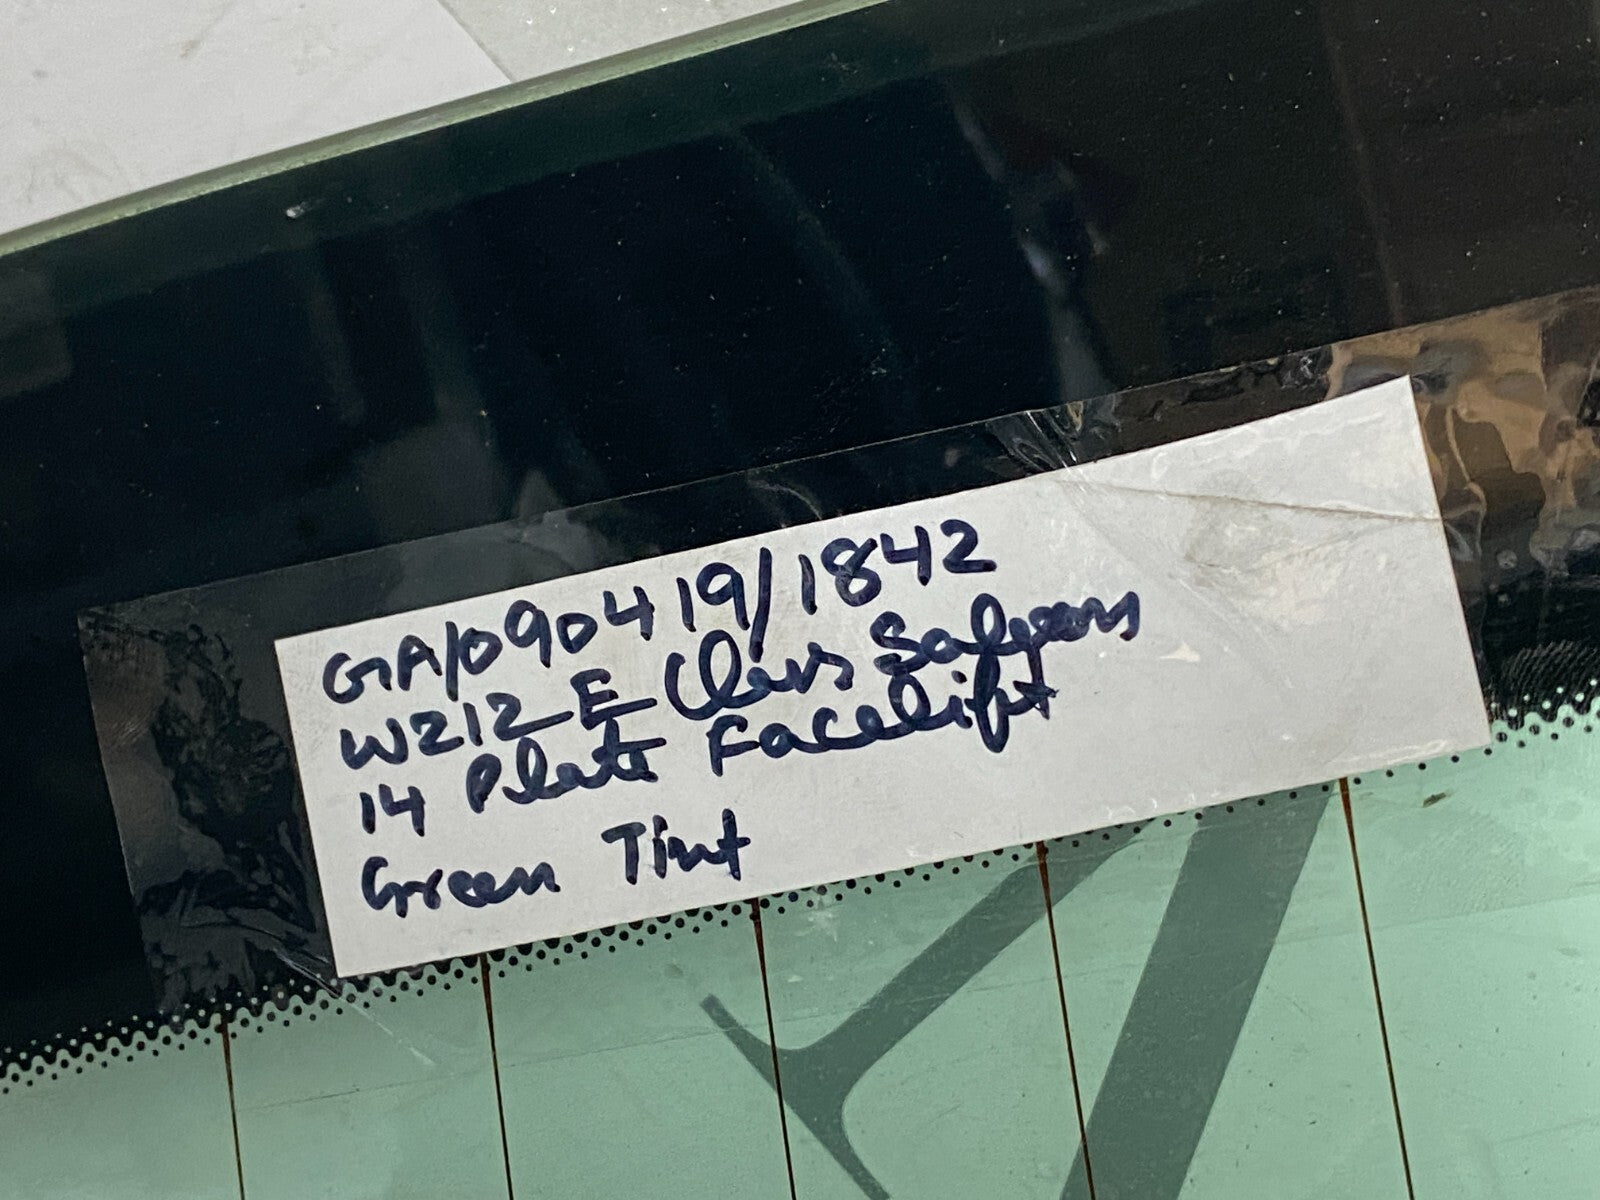 GA/090419/1842
W212 E Class Saloon
14 Plate Facelift
Green Tint